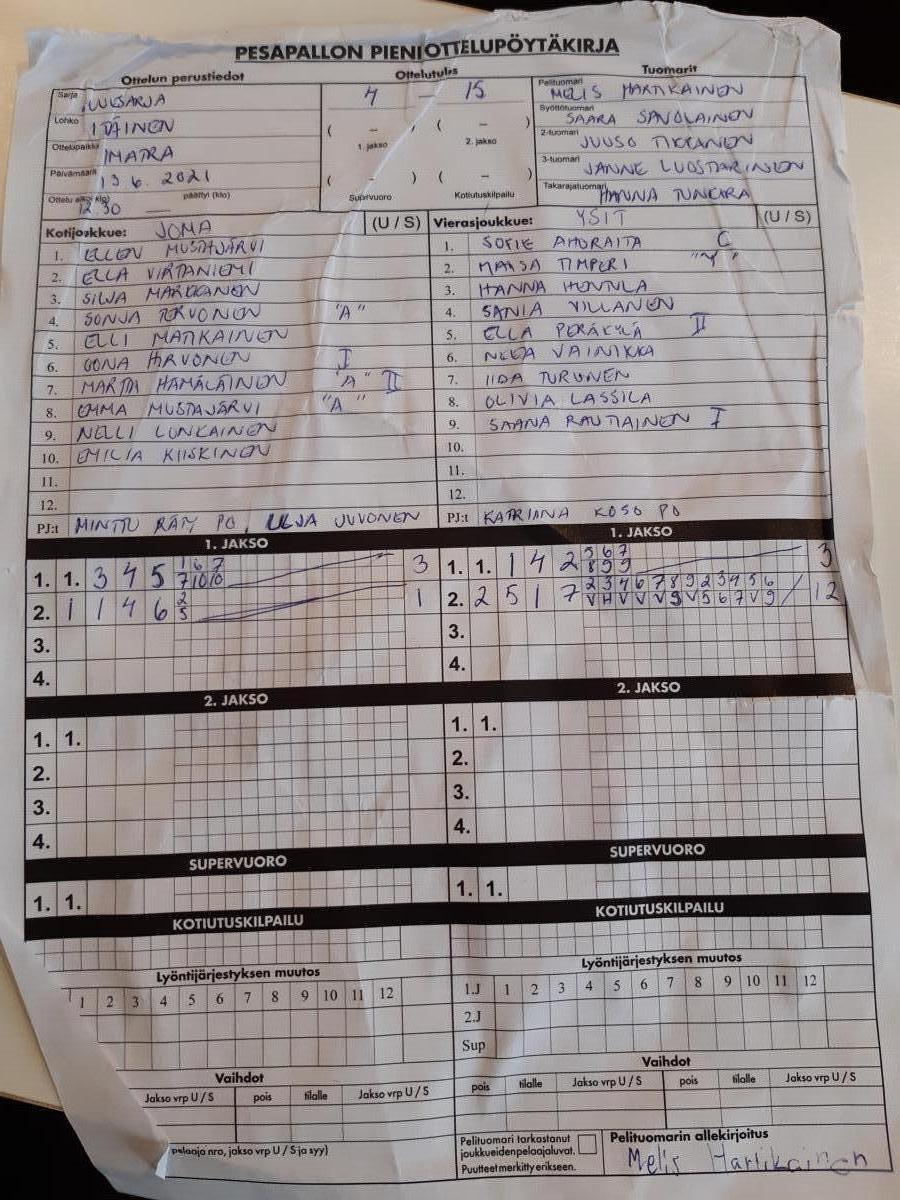 PESÄPALLON PIENIOTTELUPÖYTÄKIRJA
Ottelun perustiedot
Ottelutulos
Tuomarit
Sarja
Lohko ITÄINEN
Ottelupaikka IMATRA
Päivämäärä 13.6.2021
Ottelu alkoi klo) 12.30 päättyi (klo)
4 – 15
( – ) ( – )
1. jakso 2. jakso
( – ) ( – )
Supervuoro Kotiutuskilpailu
Pelituomari MELIS HARTIKAINEN
Syöttötuomari SAARA SAVOLAINEN
2-tuomari JUUSO TIKKANEN
3-tuomari JANNE LUOSTARINEN
Takarajatuomari HANNA TUNKARA
Kotijoukkue: JOMA (U / S)
1. ELLEN MUSTAJÄRVI
2. ELLA VIRTANIEMI
3. SILJA MARKKANEN
4. SONJA TORVONEN "A"
5. ELLI MATIKAINEN
6. OONA HIRVONEN I
7. MARTTA HÄMÄLÄINEN "A" II
8. EMMA MUSTAJÄRVI "A"
9. NELLI LUNKAINEN
10. EMILIA KIISKINEN
11.
12.
PJ:t MINTTU RÄTY PO, ULJA JUVONEN
Vierasjoukkue: YSIT (U / S)
1. SOFIE AHORAITA C
2. MAISA TIMPERI "Y"
3. HANNA HENTULA
4. SANIA VILLANEN
5. ELLA PERÄKYLÄ II
6. NEEA VAINIKKA
7. IIDA TURUNEN
8. OLIVIA LASSILA
9. SAANA RAUTIAINEN I
10.
11.
12.
PJ:t KATRIANA KOSO PO
1. JAKSO
1. 1. 3 4 5 1 6 7 3
7 10 10
2. 1 1 4 6 2 1
5
3.
4.
1. JAKSO
1. 1. 1 4 2 3 6 7 3
8 9 9
2. 2 5 1 7 2 3 4 6 7 8 9 2 3 4 5 6 / 12
V H V V V 9 V 5 6 7 V 9
3.
4.
2. JAKSO
1. 1.
2.
3.
4.
2. JAKSO
1. 1.
2.
3.
4.
SUPERVUORO
1. 1.
SUPERVUORO
1. 1.
KOTIUTUSKILPAILU
KOTIUTUSKILPAILU
Lyöntijärjestyksen muutos
1 2 3 4 5 6 7 8 9 10 11 12
Lyöntijärjestyksen muutos
1.J 1 2 3 4 5 6 7 8 9 10 11 12
2.J
Sup
Vaihdot
Jakso vrp U / S pois tilalle Jakso vrp U / S
Vaihdot
pois tilalle Jakso vrp U / S pois tilalle Jakso vrp U / S
pelaaja nro, jakso vrp U / S ja syy)
Pelituomari tarkastanut
joukkueiden pelaajaluvat.
Puutteet merkitty erikseen.
Pelituomarin allekirjoitus
Melis Hartikainen